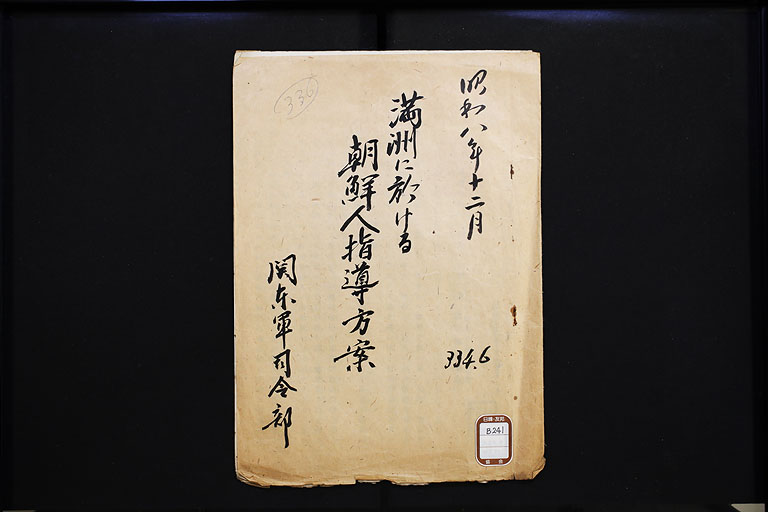 昭和八年十二月
満洲に於ける
朝鮮人指導方案
関东軍司令部
336
334.6
B241